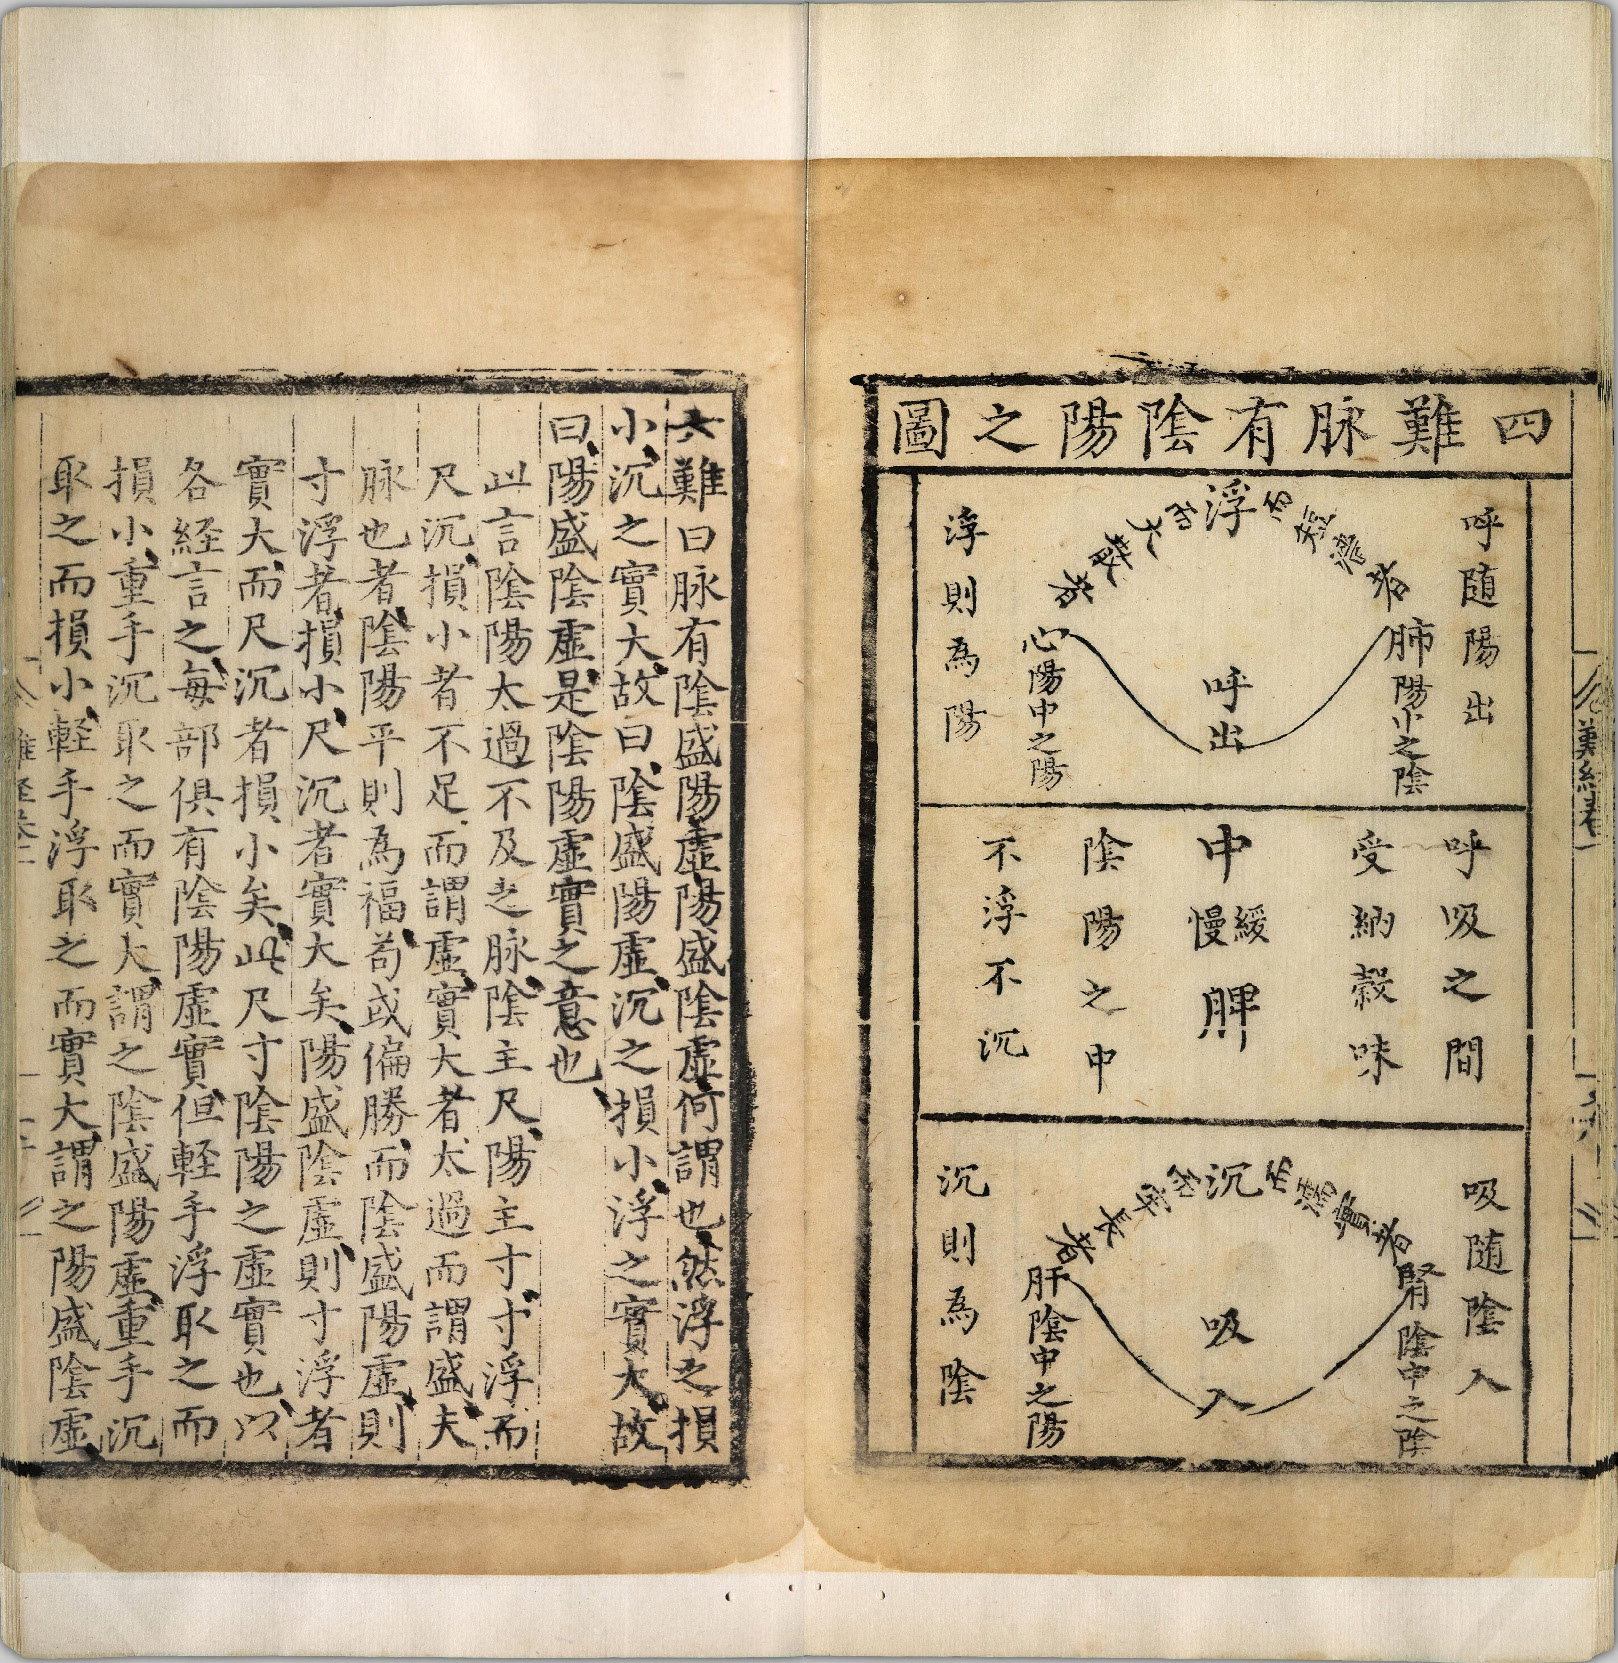 四難脉有陰陽之圖
呼隨陽出
浮
而短濇者
肺陽中之陰
而大散者
心陽中之陽
呼出
浮則為陽
呼吸之間
受納穀味
中
緩慢
脾
陰陽之中
不浮不沉
吸隨陰入
沉
而濡實者
腎陰中之陰
而牢長者
肝陰中之陽
吸入
沉則為陰
難經卷一
六難曰脉有陰盛陽虛陽盛陰虛何謂也然浮之損
小沉之實大故曰陰盛陽虛沉之損小浮之實大故
曰陽盛陰虛是陰陽虛實之意也
此言陰陽太過不及之脉陰主尺陽主寸寸浮而
尺沉損小者不足而謂虛實大者太過而謂盛夫
脉也者陰陽平則為福苟或偏勝而陰盛陽虛則
寸浮者損小尺沉者實大矣陽盛陰虛則寸浮者
實大而尺沉者損小矣此尺寸陰陽之虛實也以
各経言之每部俱有陰陽虛實但輕手浮取之而
損小重手沉取之而實大謂之陰盛陽虛重手沉
取之而損小輕手浮取之而實大謂之陽盛陰虛